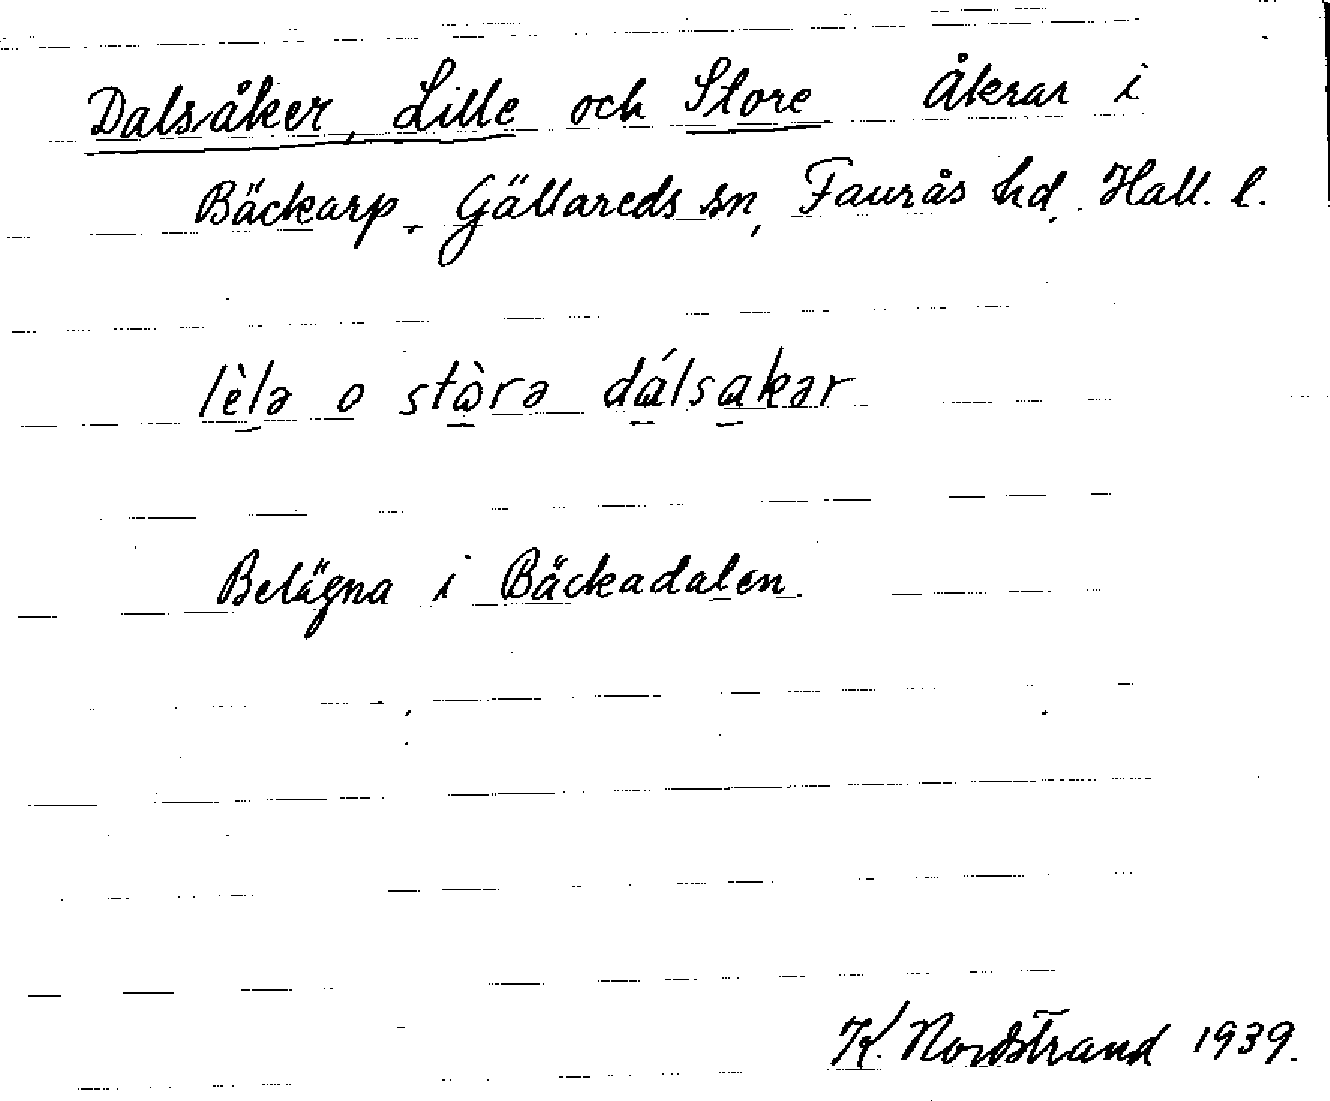 Dalsåker, Lille och Store Åkrar i
Bäckarp, Gällareds sn, Faurås hd, Hall. l.
lèlə o stòrə dálsakər
Belägna i Bäckadalen.
K. Nordstrand 1939.